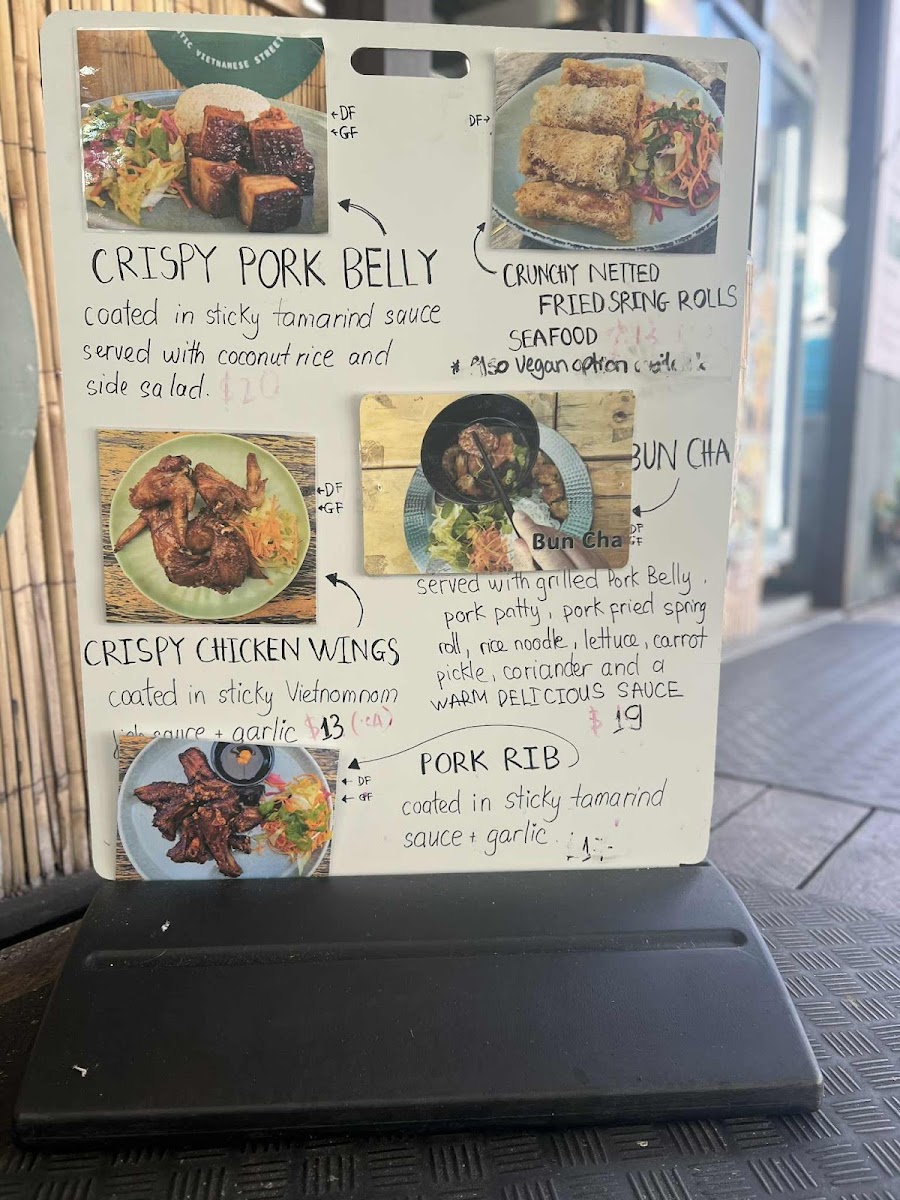 TIC VIETNAMESE STREET
←DF
←GF
CRISPY PORK BELLY
coated in sticky tamarind sauce
served with coconut rice and
side salad. $20
DF→
CRUNCHY NETTED
FRIED SRING ROLLS
SEAFOOD
* Also Vegan option
←DF
←GF
CRISPY CHICKEN WINGS
coated in sticky Vietnomnom
sauce + garlic $13
BUN CHA
Bun Cha
served with grilled Pork Belly,
pork patty, pork fried spring
roll, rice noodle, lettuce, carrot
pickle, coriander and a
WARM DELICIOUS SAUCE
$19
← DF
← GF
PORK RIB
coated in sticky tamarind
sauce + garlic